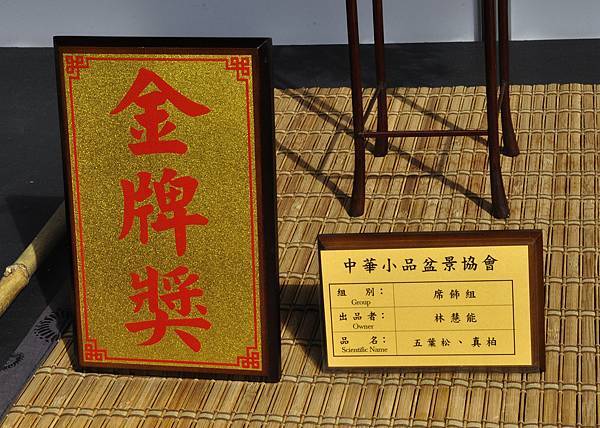 金牌獎
中華小品盆景協會
組 別： 席飾組
Group
出品者： 林慧能
Owner
品 名： 五葉松、真柏
Scientific Name